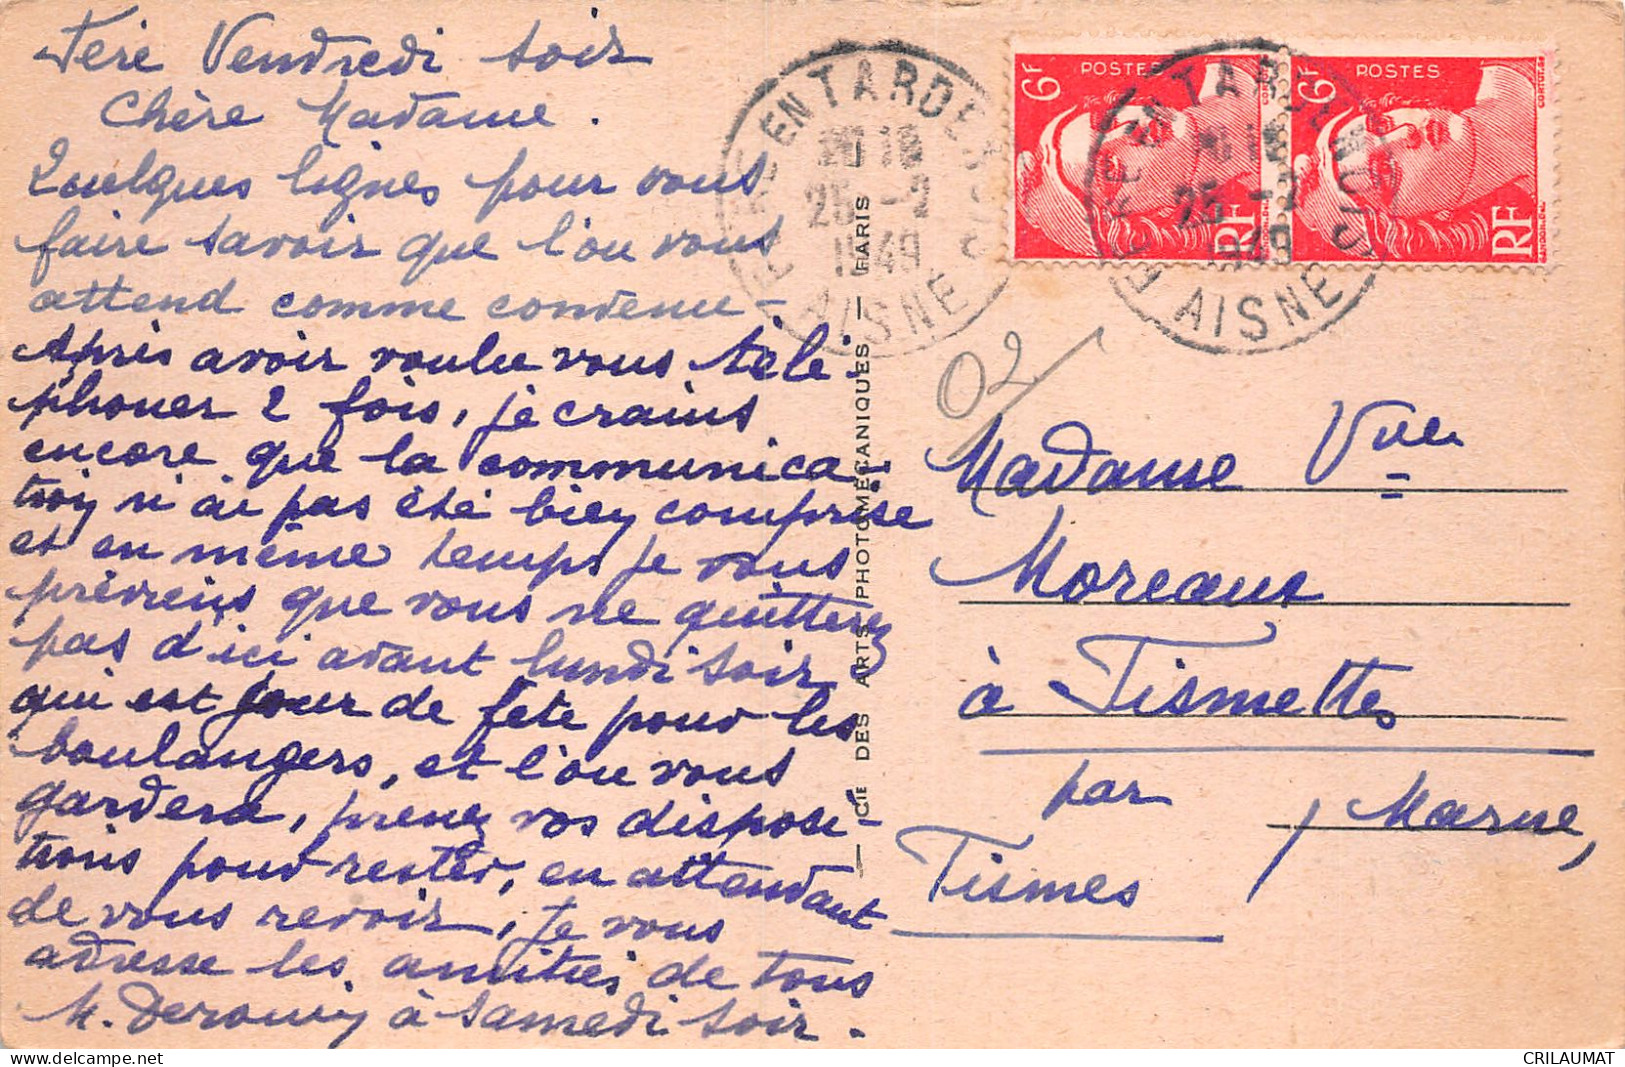 Fère Vendredi soir
Chère Madame.
Quelques lignes pour vous
faire savoir que l'on vous
attend comme convenu -
Après avoir voulu vous télé-
phoner 2 fois, je crains
encore que la communica-
tion n'ai pas été bien comprise
et en même temps je vous
préviens que vous ne quitterez
pas d'ici avant lundi soir
qui est jour de fête pour les
boulangers, et l'on vous
gardera, prenez vos disposi-
tions pour rester, en attendant
de vous revoir, je vous
adresse les amitiés de tous
M. Derouin à samedi soir.
— CIE DES ARTS PHOTOMÉCANIQUES — PARIS
FÈRE EN TARDENOIS
25 -2
1949
AISNE
6F POSTES RF
6F POSTES RF
FÈRE EN TARDENOIS
25 -2
1949
AISNE
02
Madame Vve
Moreaux
à Tismettes
par
Tismes / Marne,
CRILAUMAT